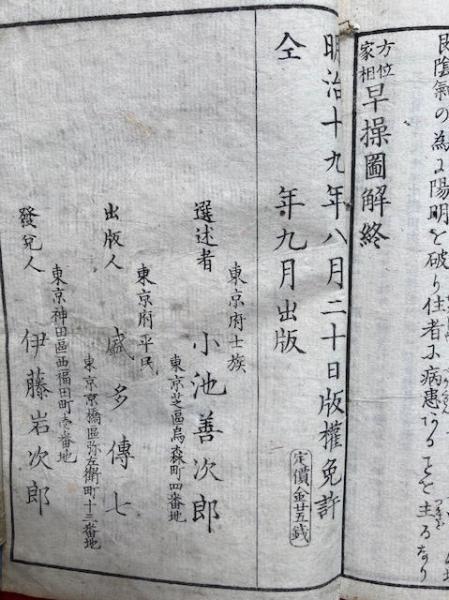 艮陰氣の為よ陽明を破り住者に病患あることを主るなり
方位
家相
早操圖解終
明治十九年八月二十日版權免許
仝年九月出版
定價金廿五錢
東京府士族
選述者 小池善次郎
東京芝區烏森町四番地
東京府平民
出版人 戚多傳七
東京京橋區弥左衛町十三番地
發兌人 伊藤岩次郎
東京神田區西福田町壱番地